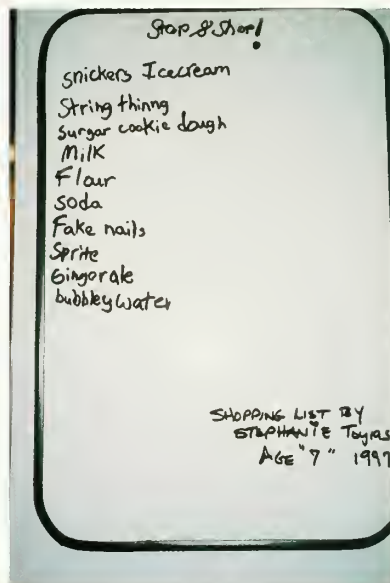 Stop & Shop!
snickers Icecream
String thinng
surgar cookie dough
Milk
Flour
soda
Fake nails
Sprite
Gingorale
bubbley water
SHOPPING LIST BY
STEPHANIE
AGE "7" 1997